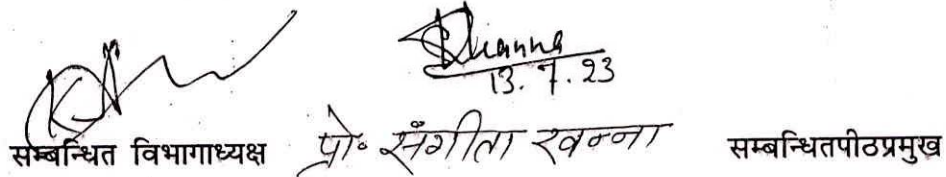 Khanna
13.7.23
सम्बन्धित विभागाध्यक्ष प्रो॰ संगीता खन्ना सम्बन्धितपीठप्रमुख